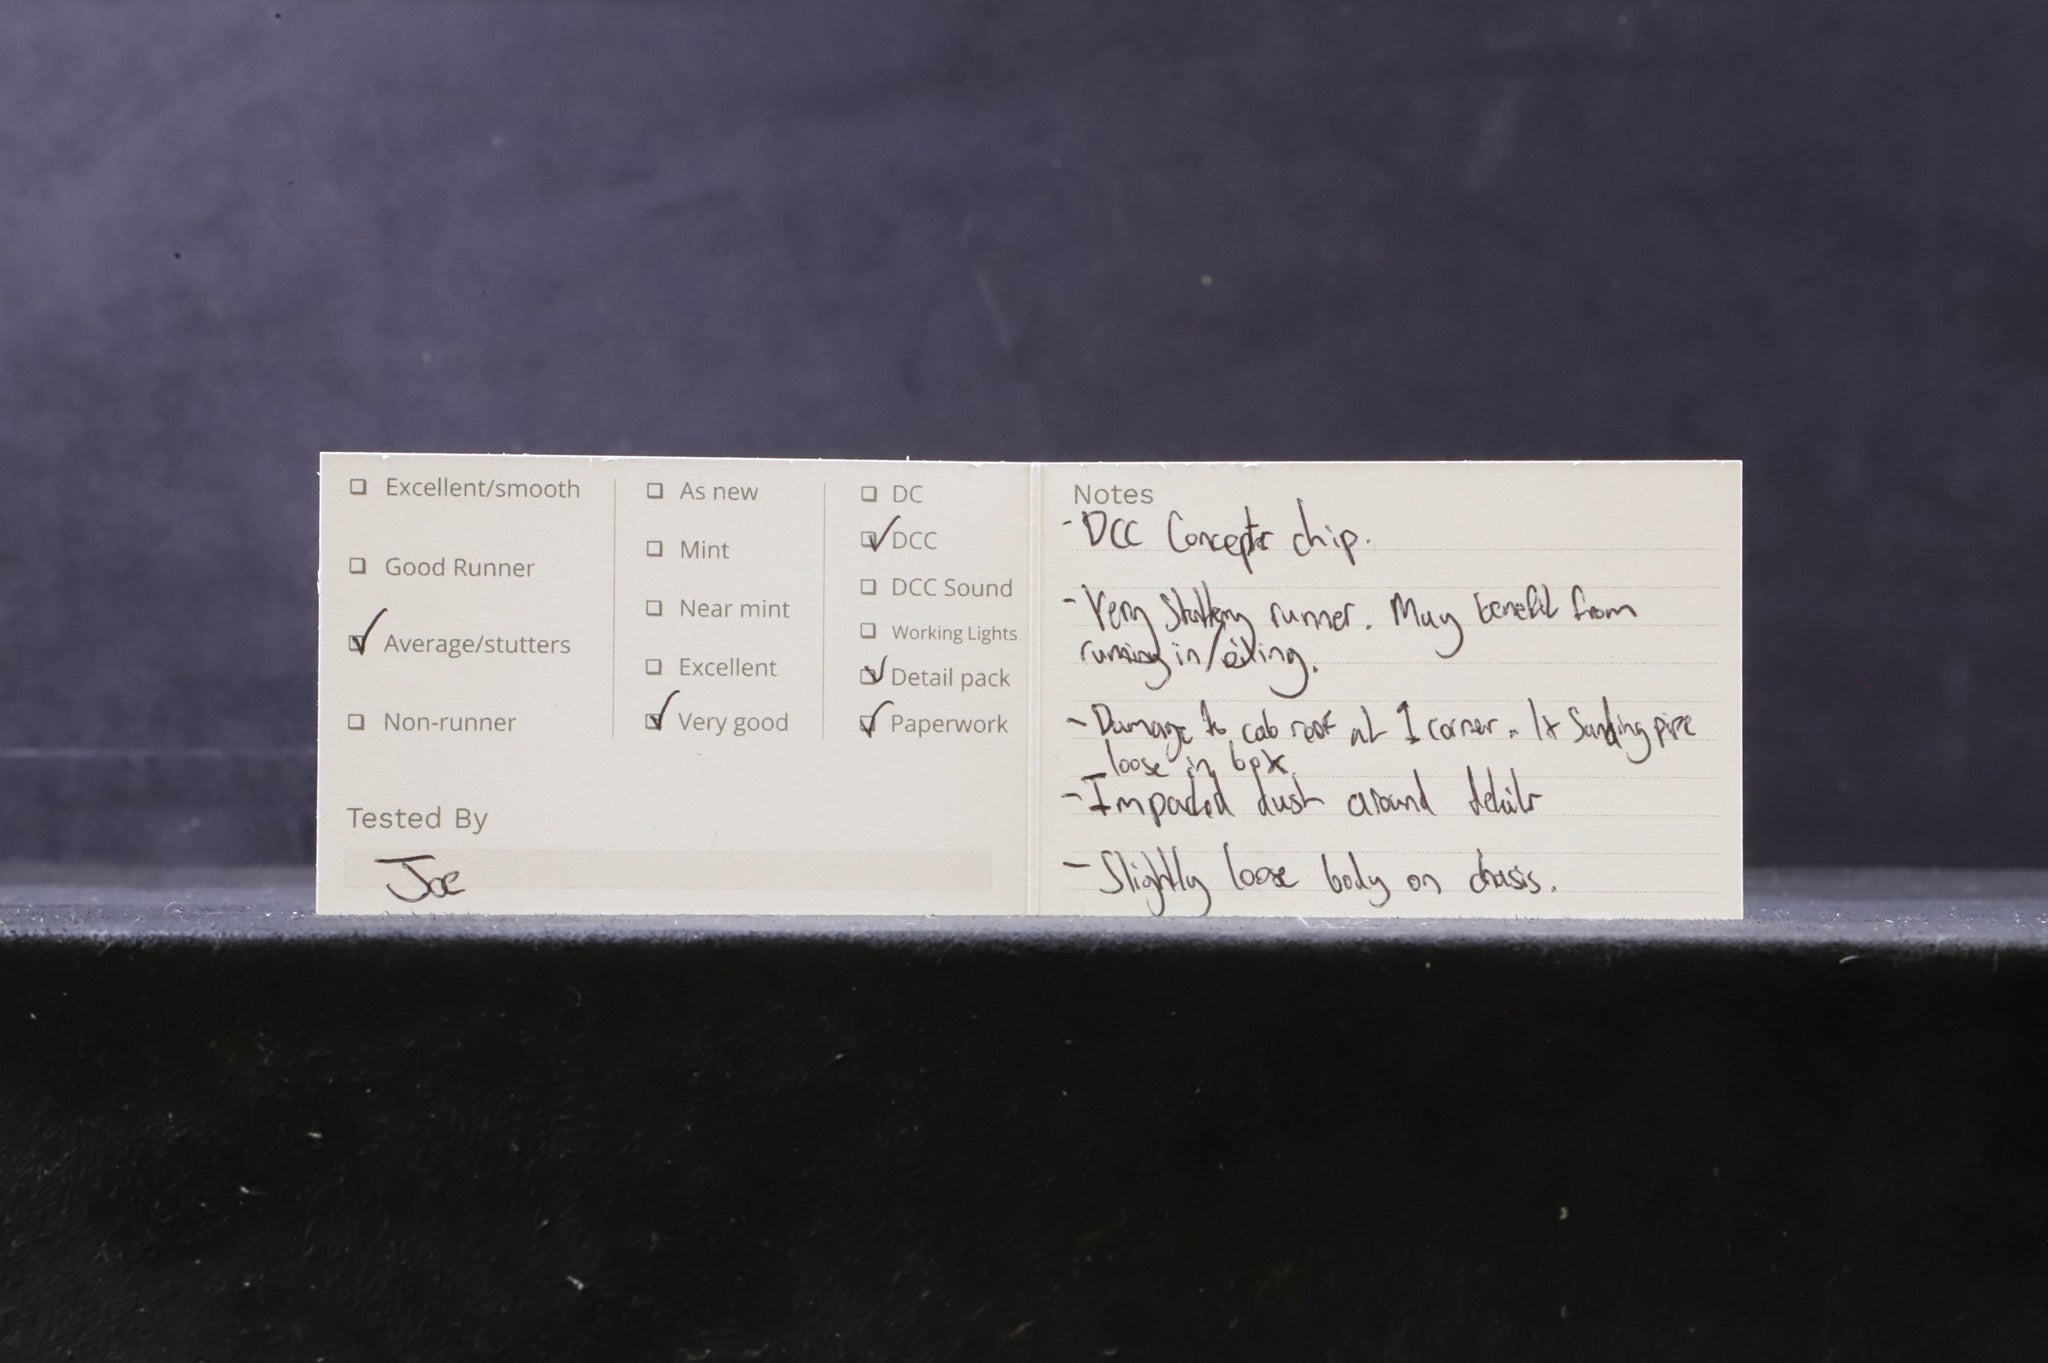 Excellent/smooth
Good Runner
Average/stutters
Non-runner
As new
Mint
Near mint
Excellent
Very good
DC
DCC
DCC Sound
Working Lights
Detail pack
Paperwork
Tested By
Joe
Notes
- DCC Concepts chip.
- Very Stuttery runner. May benefit from
running in/oiling.
- Damage to cab roof at 1 corner. 1x Sanding pipe
loose in box
- Impacted dust around details
- Slightly loose body on chasis.